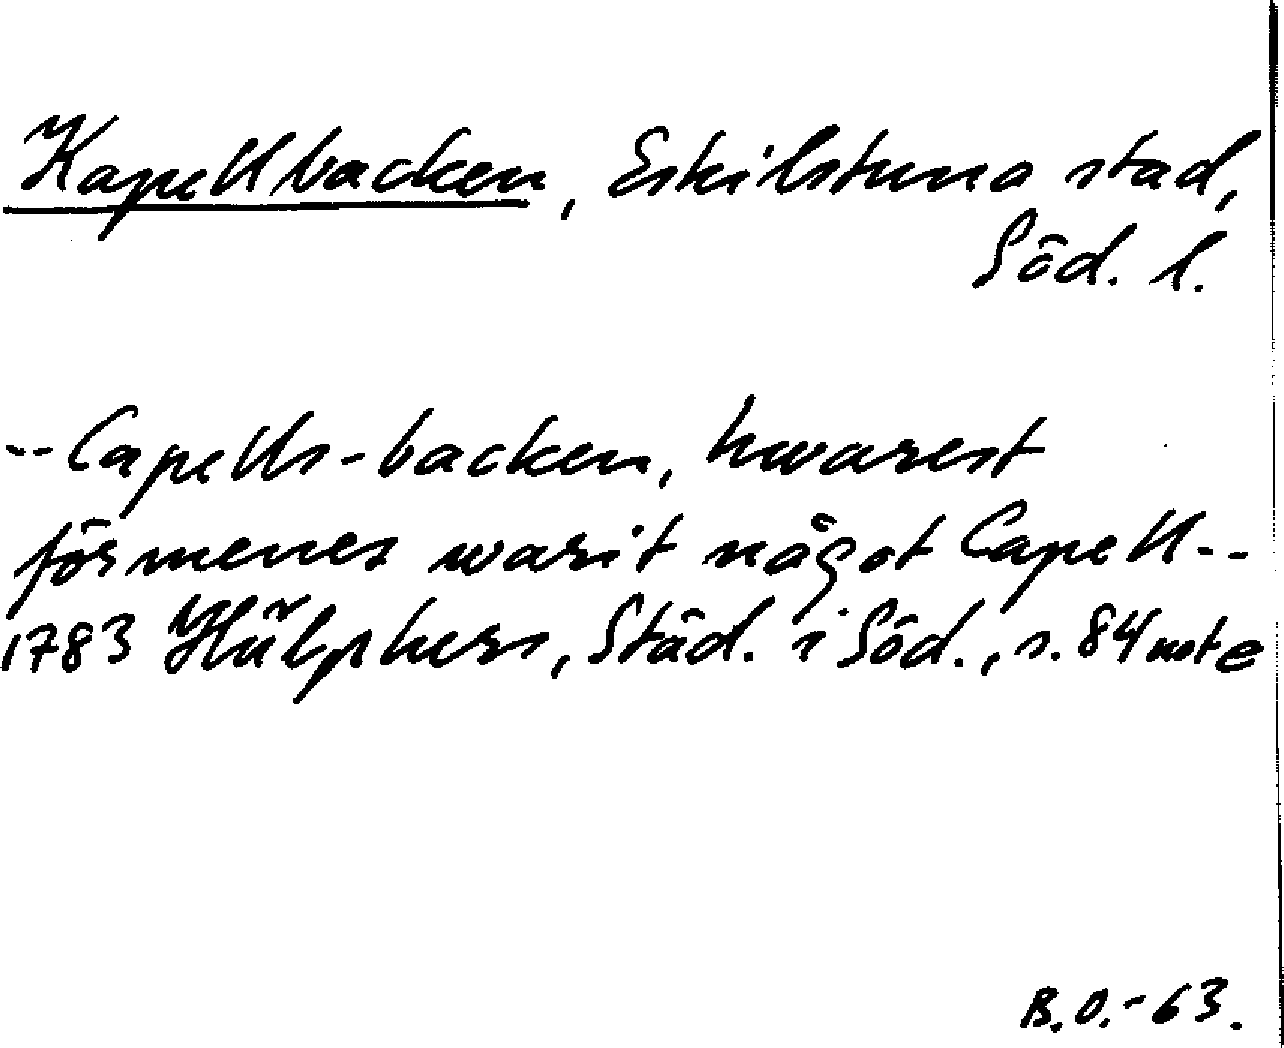 Kapellbacken, Eskilstuna stad,
Söd. l.
--Capells-backen, hwarest
förmenes warit något Capell--
1783 Hülphers, Städ. i Söd., s. 84 note
B.O.-63.